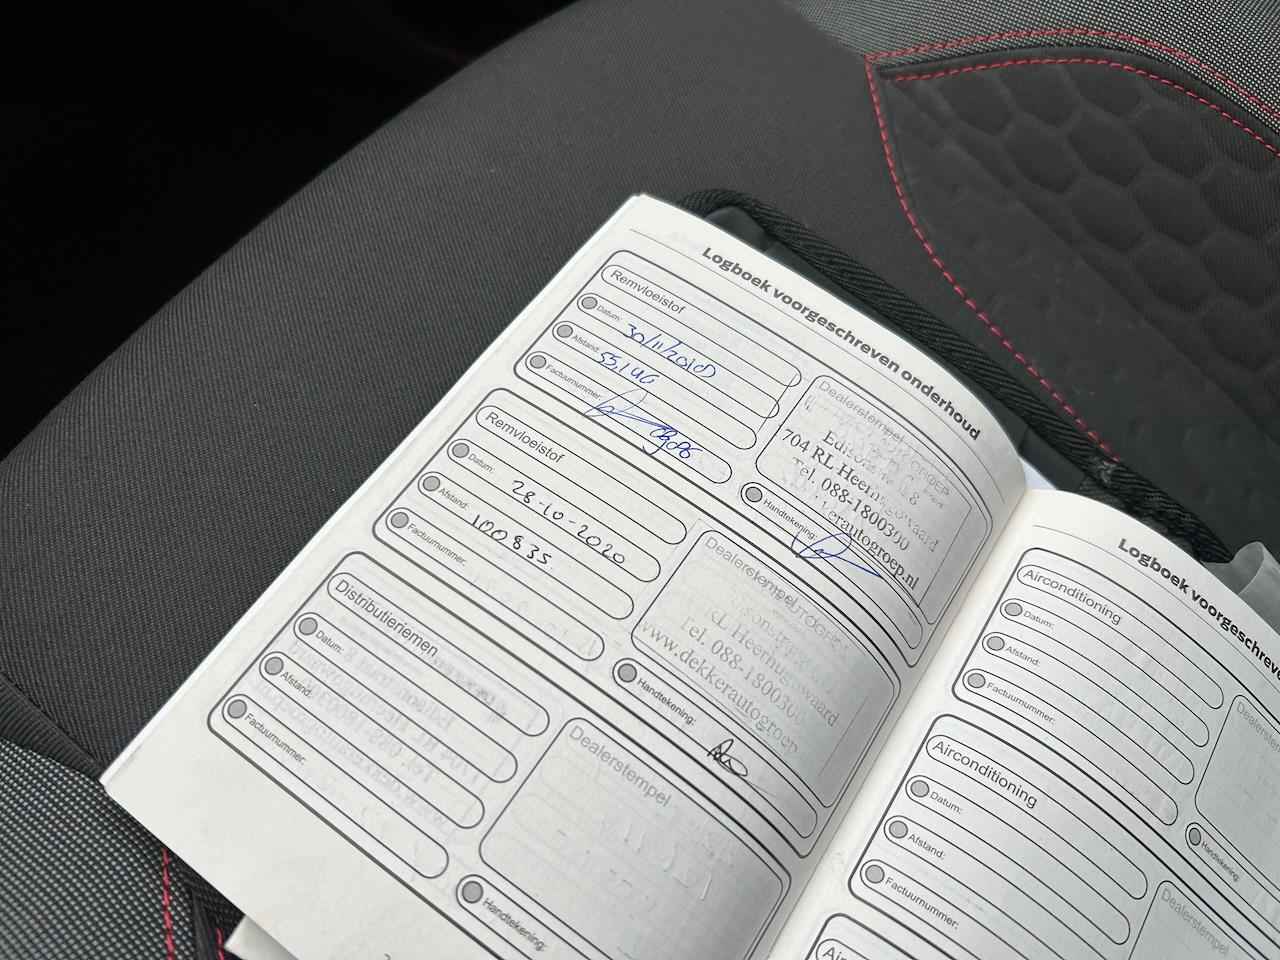 Logboek voorgeschreven onderhoud
Remvloeistof
Datum:
Afstand:
55.146
Factuurnummer:
Dealerstempel
704 RL
Tel. 088-1800300
Handtekening:
Remvloeistof
Datum: 28-10-2020
Afstand: 100835
Factuurnummer:
Dealerstempel
Tel. 088-1800300
www.dekkerautogroep
Handtekening:
Distributieriemen
Datum:
Afstand:
Factuurnummer:
Dealerstempel
Handtekening:
Logboek voorgeschreve
Airconditioning
Datum:
Afstand:
Factuurnummer:
Handtekening:
Airconditioning
Datum:
Afstand:
Factuurnummer:
Dealerstempel